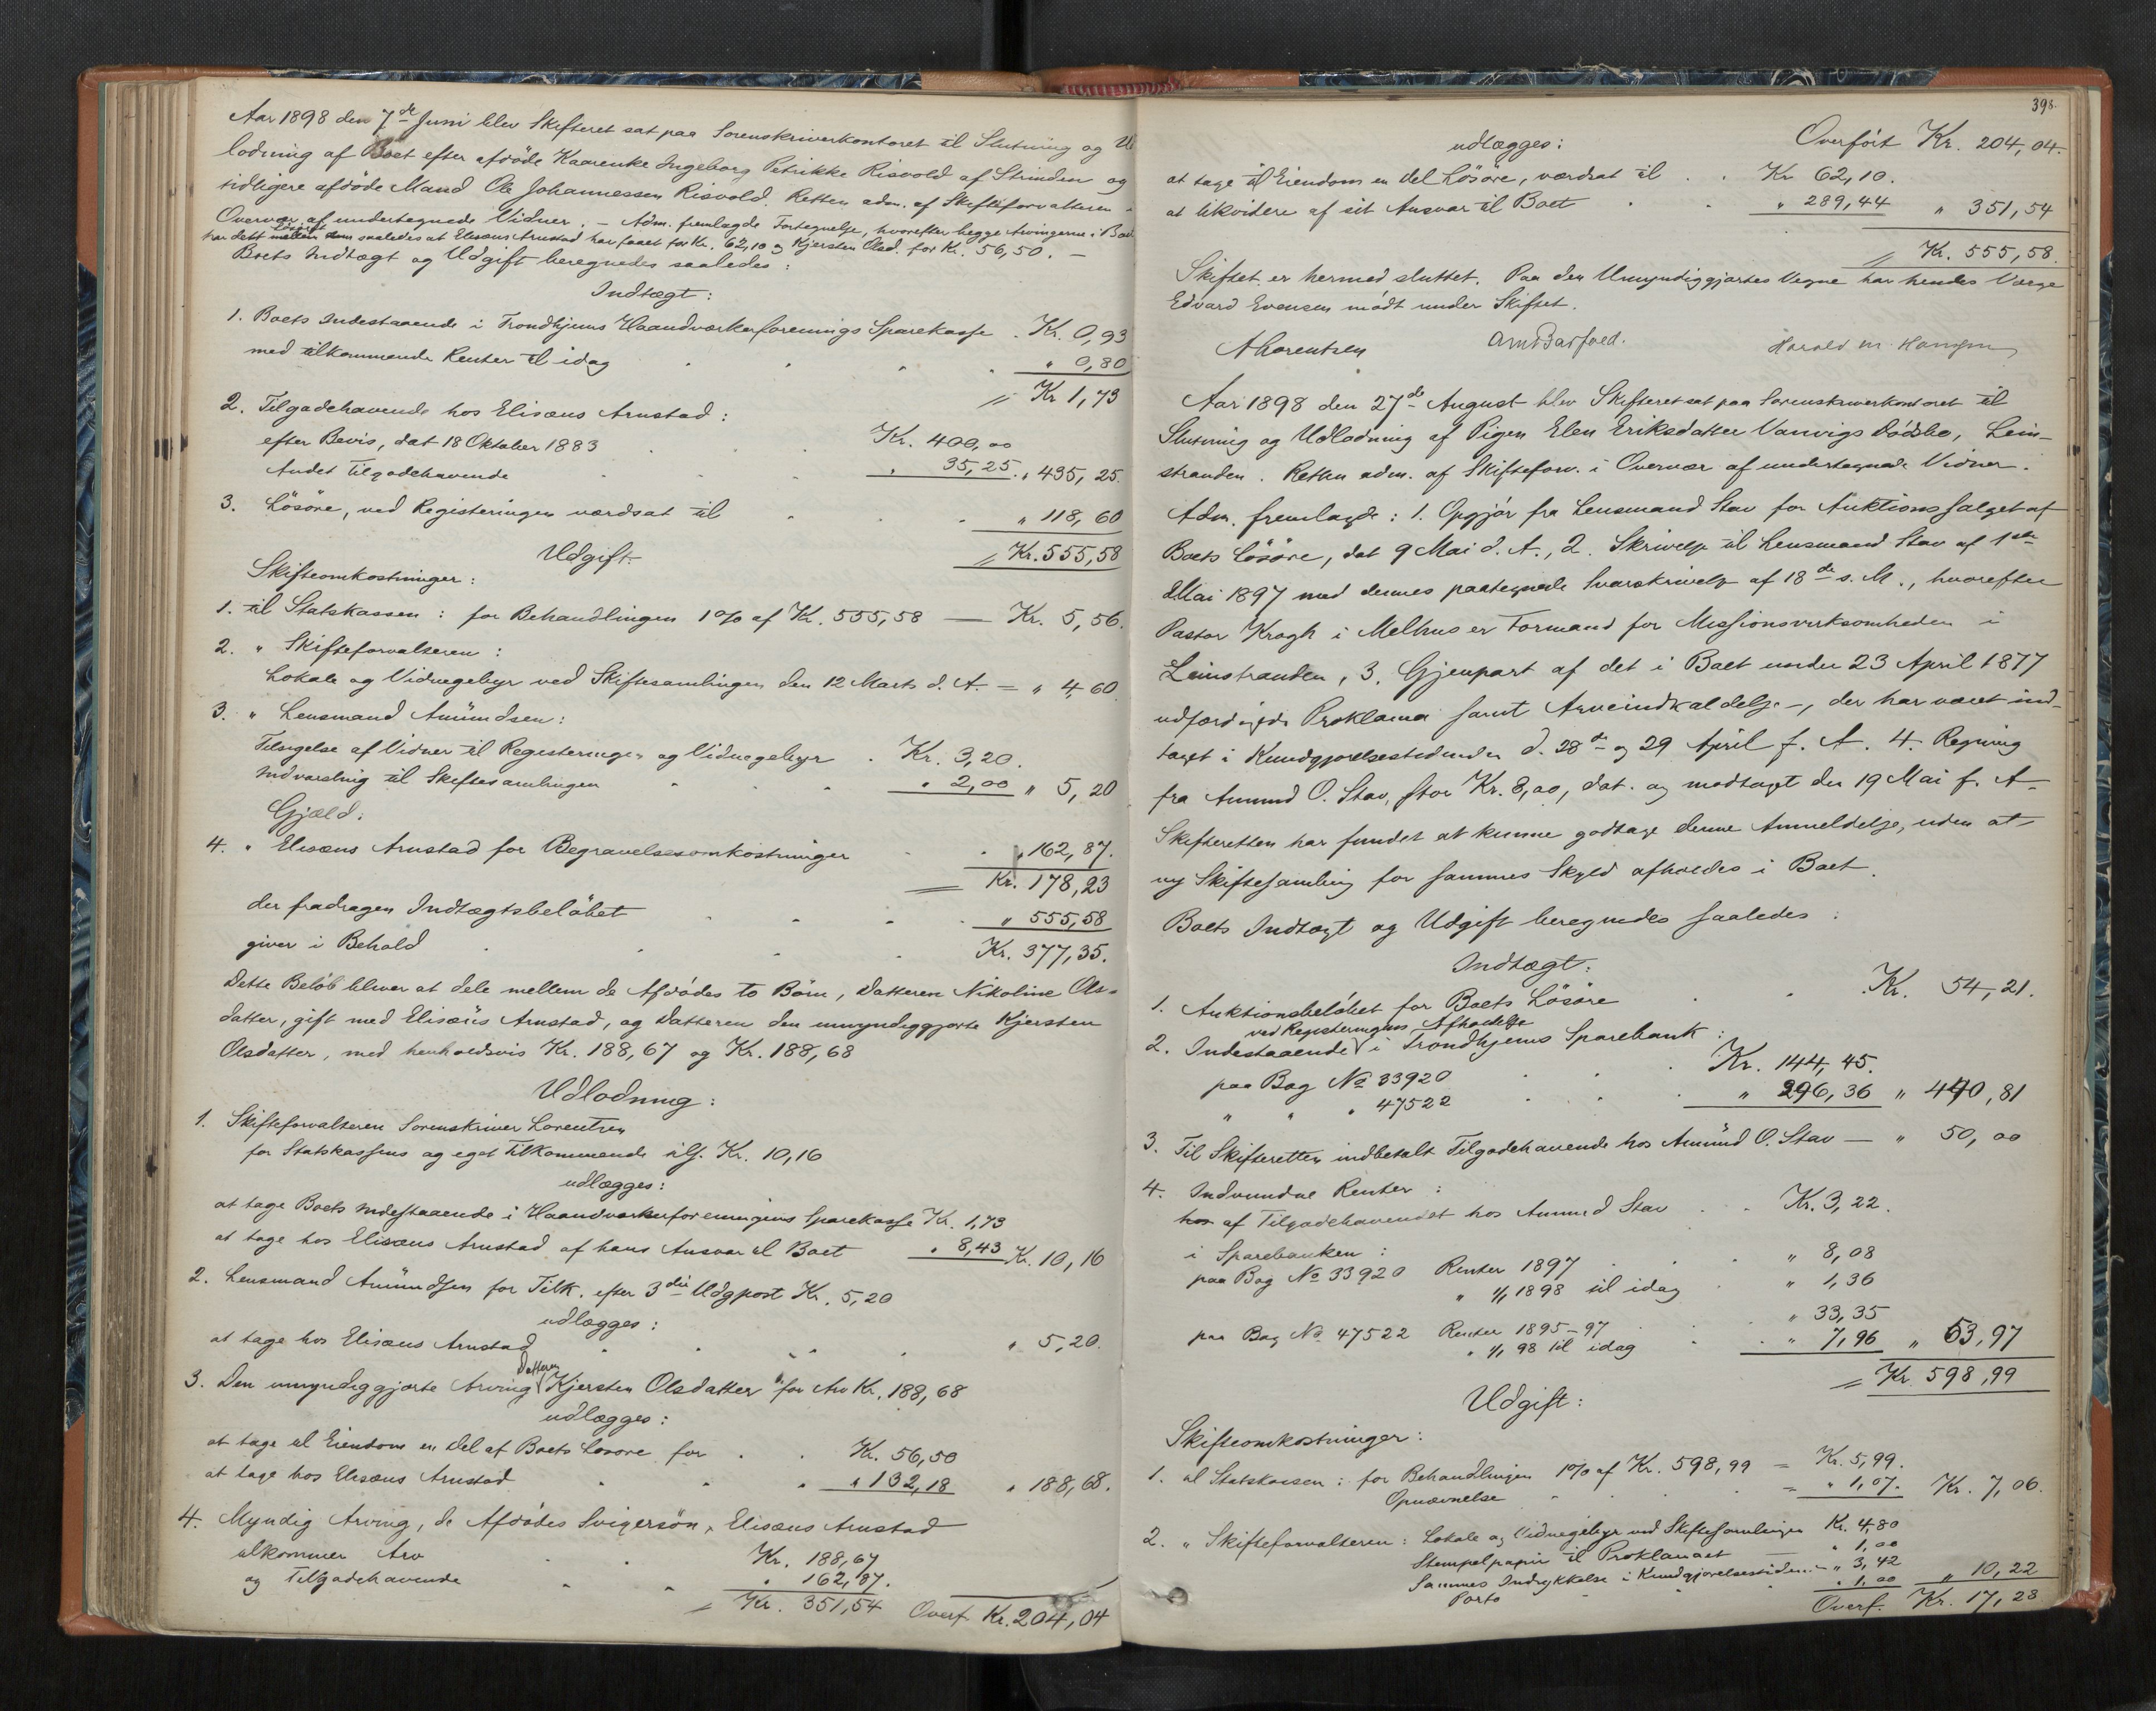 Aar 1898 den 7de Juni blev Skifteret sat paa Sorenskriverkontoret til Slutning og Ud
lodning af Boet efter afdöde Kaarenke Ingeborg Petrikke Risvold af Strinden og
tidligere afdöde Mand Ole Johannessen Risvold. Retten adm. af Skifteforvalteren i
Overvær af undertegnede Vidner. – Adm. fremlagde Fortegnelse, hvorefter begge Arvingerne i Boet
har delt Lösöret mellem dem saaledes at Elisæus Arnstad har faaet for Kr. 62,10 og Kjersten Olsd. for Kr. 56,50. –
Boets Indtægt og Udgift beregnedes saaledes:
Indtægt:
1. Boets Indestaaende i Trondhjems Haandværkerforenings Sparekasse . Kr. 0,93
med tilkommende Renter til idag " 0,80
= Kr 1,73
2. Tilgodehavende hos Elisæus Arnstad:
efter Bevis, dat 18 Oktober 1883 Kr. 400,00
Andet Tilgodehavende " 35,25. " 435,25.
3. Lösöre, ved Registeringen værdsat til " 118,60
= Kr. 555,58
Udgift:
Skifteomkostninger:
1. til Statskassen: for Behandlingen 1% af Kr. 555,58 — Kr. 5,56.
2. " Skifteforvalteren:
Lokale og Vidnegebyr ved Skiftesamlingen den 12 Marts d. A. = " 4,60
3. " Lensmand Amundsen:
Tilsigelse af Vidner til Registeringen og Vidnegebyr . Kr. 3,20.
Indvarsling til Skiftesamlingen " 2,00 " 5,20
Gjæld:
4. " Elisæus Arnstad for Begravelsesomkostninger " 162,87.
= Kr. 178,23
der fradragen Indtægtsbelöbet " 555,58
giver i Behold Kr. 377,35.
Dette Belöb bliver at dele mellem de Afdödes to Börn, Datteren Nikoline Ols-
datter, gift med Elisæus Arnstad, og Datteren den umyndiggjorte Kjersten
Olsdatter, med henholdsvis Kr. 188,67 og Kr. 188,68
Udlodning:
1. Skifteforvalteren Sorenskriver Lorentzen
for Statskassens og eget Tilkommende ialt Kr. 10,16
udlægges:
at tage Boets Indestaaende i Haandværkerforeningens Sparekasse Kr. 1,73
at tage hos Elisæus Arnstad af hans Ansvar til Boet " 8,43 Kr. 10,16
2. Lensmand Amundsen for Tilk. efter 3die Udgpost Kr. 5,20
udlægges:
at tage hos Elisæus Arnstad " 5,20.
3. Den umyndiggjorte Arving Datteren Kjersten Olsdatter for Arv Kr. 188,68
udlægges:
at tage til Eiendom en Del af Boets Lösöre for Kr. 56,50
at tage hos Elisæus Arnstad " 132,18 " 188,68.
4. Myndig Arving, de Afdödes Svigersön, Elisæus Arnstad
tilkommer Arv Kr. 188,67
og Tilgodehavende " 162,87.
= Kr. 351,54 Overf. Kr. 204,04
398.
udlægges: Overfört Kr. 204,04.
at tage til Eiendom en Del Lösöre, værdsat til . . Kr 62,10.
at likvidere af sit Ansvar til Boet " 289,44 " 351,54
= Kr. 555,58.
Skiftet er hermed sluttet. Paa den Umyndiggjortes Vegne har hendes Værge
Edvard Evensen mödt under Skiftet.
A Lorentzen Harold M. Hansen
Aar 1898 den 27de August blev Skifteret sat paa Sorenskriverkontoret til
Slutning og Udlodning af Pigen Elen Eriksdatter Vanvigs Dödsbo, Lein-
stranden. Retten adm. af Skifteforv. i Overvær af undertegnede Vidner.
Adm. fremlagde: 1. Opgjör fra Lensmand Stav for Auktionssalget af
Boets Lösöre, dat 9 Mai d. A., 2. Skrivelse til Lensmand Stav af 1ste
Mai 1897 med dennes paategnede Svarskrivelse af 18de s. M., hvorefter
Pastor Krogh i Melhus er Formand for Missionsvirksomheden i
Leinstranden, 3. Gjenpart af det i Boet under 23 April 1877
udfærdigede Proklama samt Arveindkaldelse –, der har været ind-
taget i Kundgjørelsestidenden d. 28de og 29 April f. A. 4. Regning
fra Amund O. Stav, stor Kr. 8,00, dat. og modtaget den 19 Mai f. A.
Skifteretten har fundet at kunne godtage denne Anmeldelse, uden at
ny Skiftesamling for sammes Skyld afholdes i Boet.
Boets Indtægt og Udgift beregnedes saaledes:
Indtægt:
1. Auktionsbelöbet for Boets Lösöre Kr. 54,21.
2. Indestaaende ved Registeringens Afholdelse i Trondhjems Sparebank:
paa Bog No 33920 Kr. 144,45.
" " " 47522 " 296,36 " 440,81
3. Til Skifteretten indbetalt Tilgodehavende hos Amund O. Stav — " 50,00
4. Indvundne Renter:
hos af Tilgodehavendet hos Amund Stav . . Kr. 3,22.
i Sparebanken:
paa Bog No 33920 Renter 1897 " 8,08
" 1/1 1898 til idag " 1,36
paa Bog No 47522 Renter 1895–97 " 33,35
" 1/1 98 til idag " 7,96 " 53,97
= Kr. 598,99
Udgift:
Skifteomkostninger:
1. til Statskassen: for Behandlingen 1% af Kr. 598,99 = Kr. 5,99.
Opnævnelse = " 1,07. Kr. 7,06.
2. " Skifteforvalteren: Lokale og Vidnegebyr ved Skiftesamlingen Kr. 4,80
Stempelpapir til Proklamaet " 1,00
Sammes Indrykkelse i Kundgjørelsestiden: – " 3,42
Porto " 1,00 " 10,22
Overf. Kr. 17,28